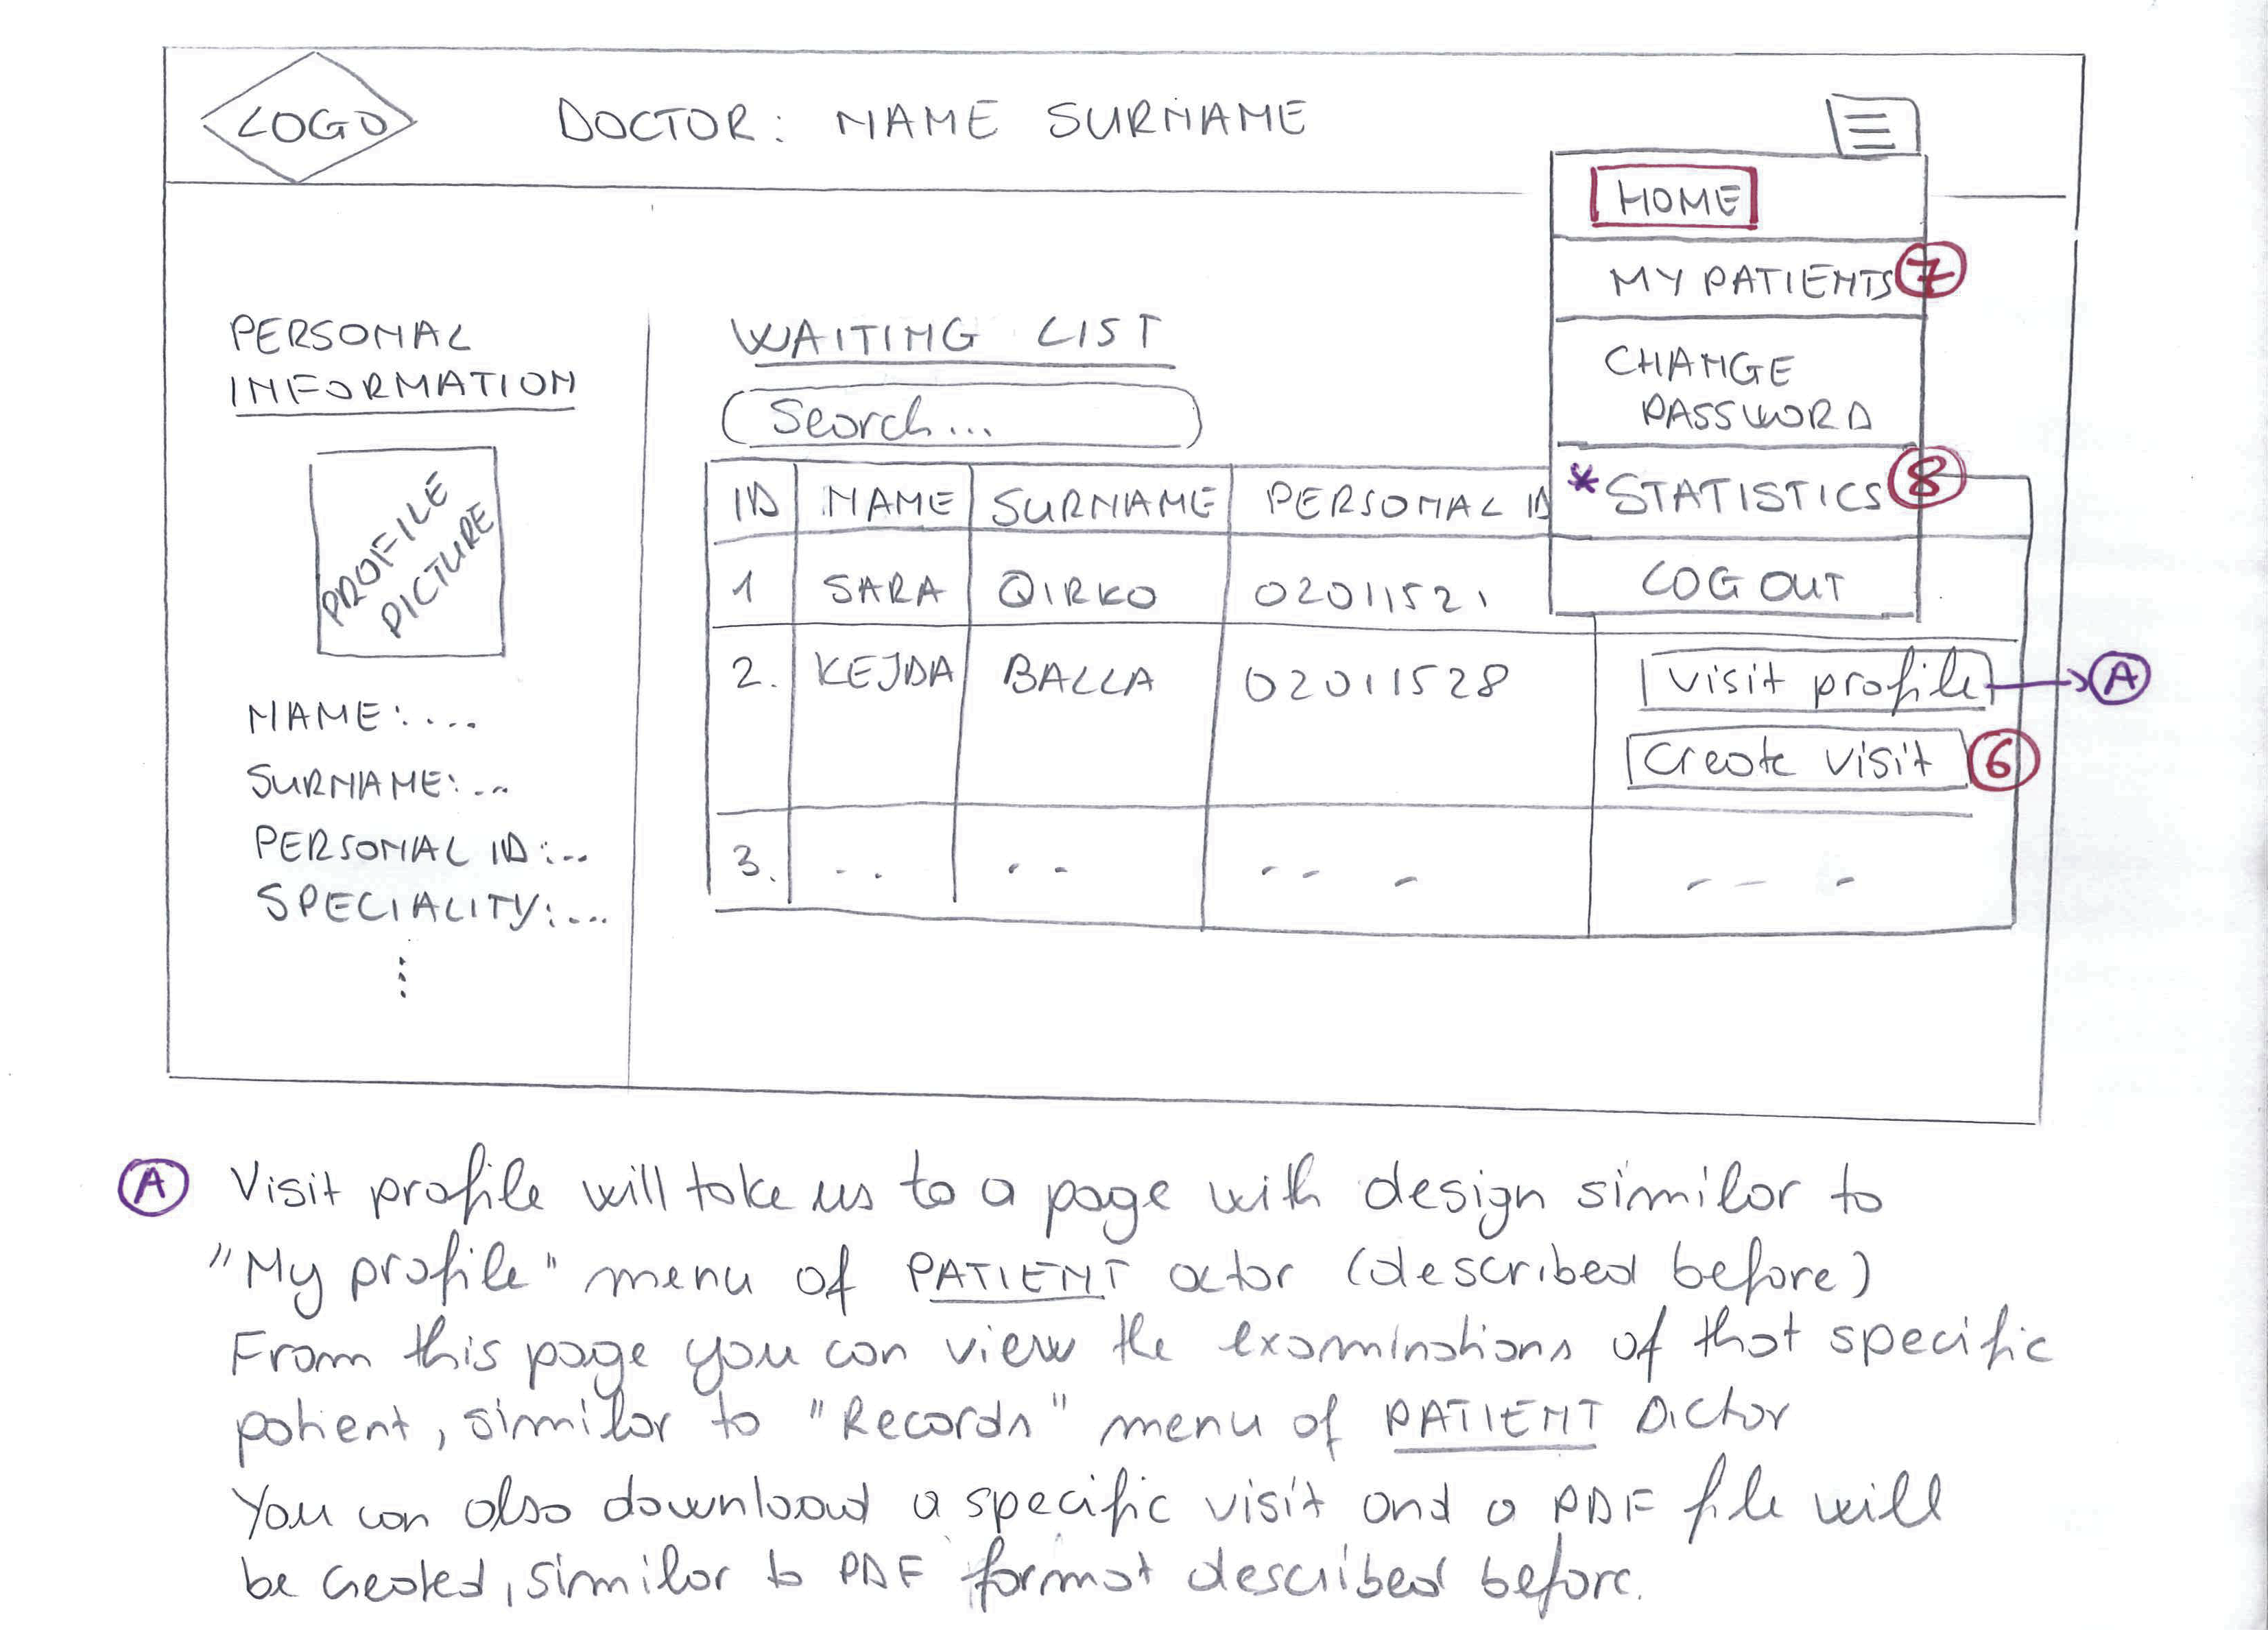 LOGO
DOCTOR: NAME SURNAME
HOME
MY PATIENTS 7
CHANGE
PASSWORD
* STATISTICS 8
LOG OUT
PERSONAL
INFORMATION
PROFILE
PICTURE
NAME:....
SURNAME:...
PERSONAL ID:...
SPECIALITY:...
WAITING LIST
Search...
ID NAME SURNAME PERSONAL ID
1 SARA QIRKO 02011521
2. KEJDA BALLA 02011528
visit profile A
Create visit 6
3. .. .. -- - -- -
A Visit profile will take us to a page with design similar to
"My profile" menu of PATIENT actor (described before)
From this page you can view the examinations of that specific
patient, similar to "Records" menu of PATIENT Dictor
You can also download a specific visit and a PDF file will
be created, similar to PDF format described before.